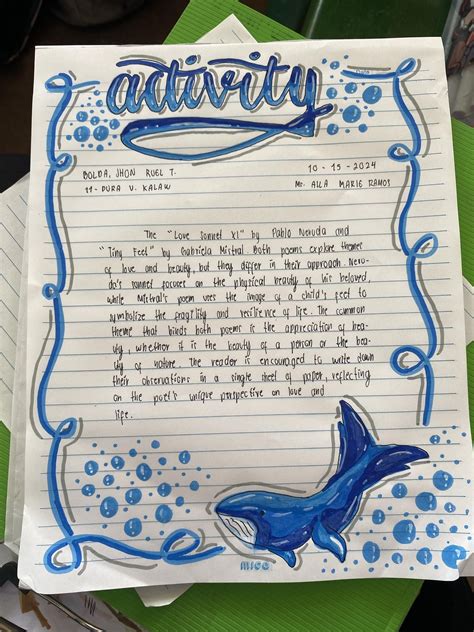 activity
BOLDA, JHON RUEL T. 10-15-2024
11- DURA V. KALAW Ms. AILA MARIE RAMOS
The "Love Sonnet XI" by Pablo Neruda and
"Tiny Feet" by Gabriela Mistral Both poems explore themes
of love and beauty, but they differ in their approach. Neru-
da's sonnet focuses on the physical beauty of his beloved,
while Mistral's poem uses the image of a child's feet to
symbolize the fragility and resilience of life. The common
theme that binds both poems is the appreciation of bea-
uty, whether it is the beauty of a person or the bea-
ty of nature. The reader is encouraged to write down
their observations in a single sheet of paper, reflecting
on the poet's unique perspective on love and
life.